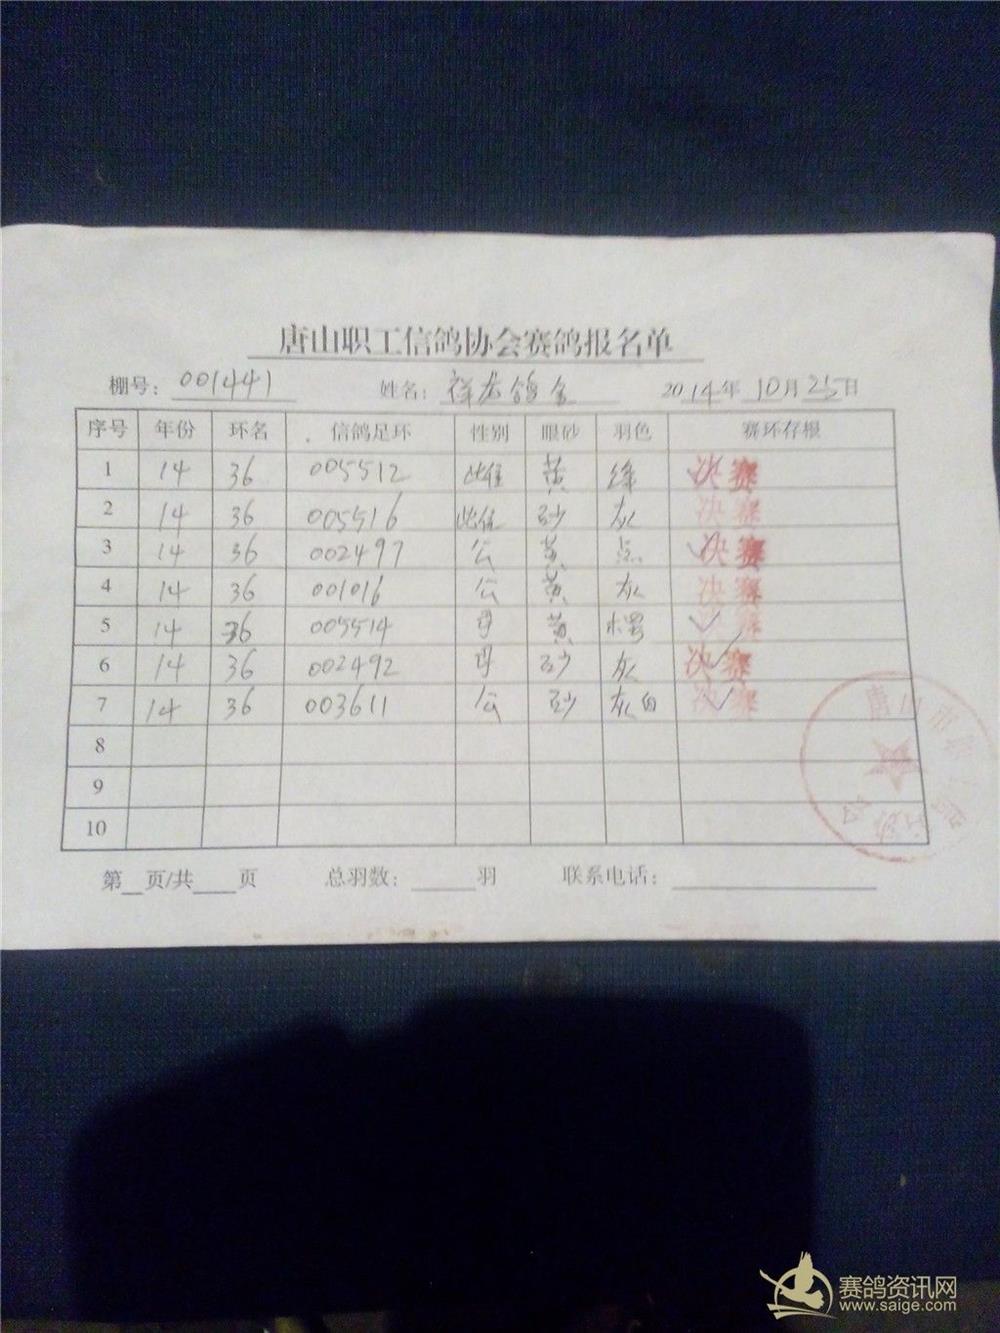 唐山职工信鸽协会赛鸽报名单
棚号: 001441 姓名: 祥龙鸽舍 2014年10月25日
序号 年份 环名 信鸽足环 性别 眼砂 羽色 赛环存根
1 14 36 005512 雌 黄 绛 决赛
2 14 36 005516 雌 砂 灰 决赛
3 14 36 002497 公 黄 点 决赛
4 14 36 001016 公 黄 灰 决赛
5 14 36 005514 母 黄 决赛
6 14 36 002492 母 砂 灰 决赛
7 14 36 003611 公 砂 灰白 决赛
8
9
10
第 页/共 页 总羽数: 羽 联系电话:
唐山市
赛鸽资讯网
www.saige.com